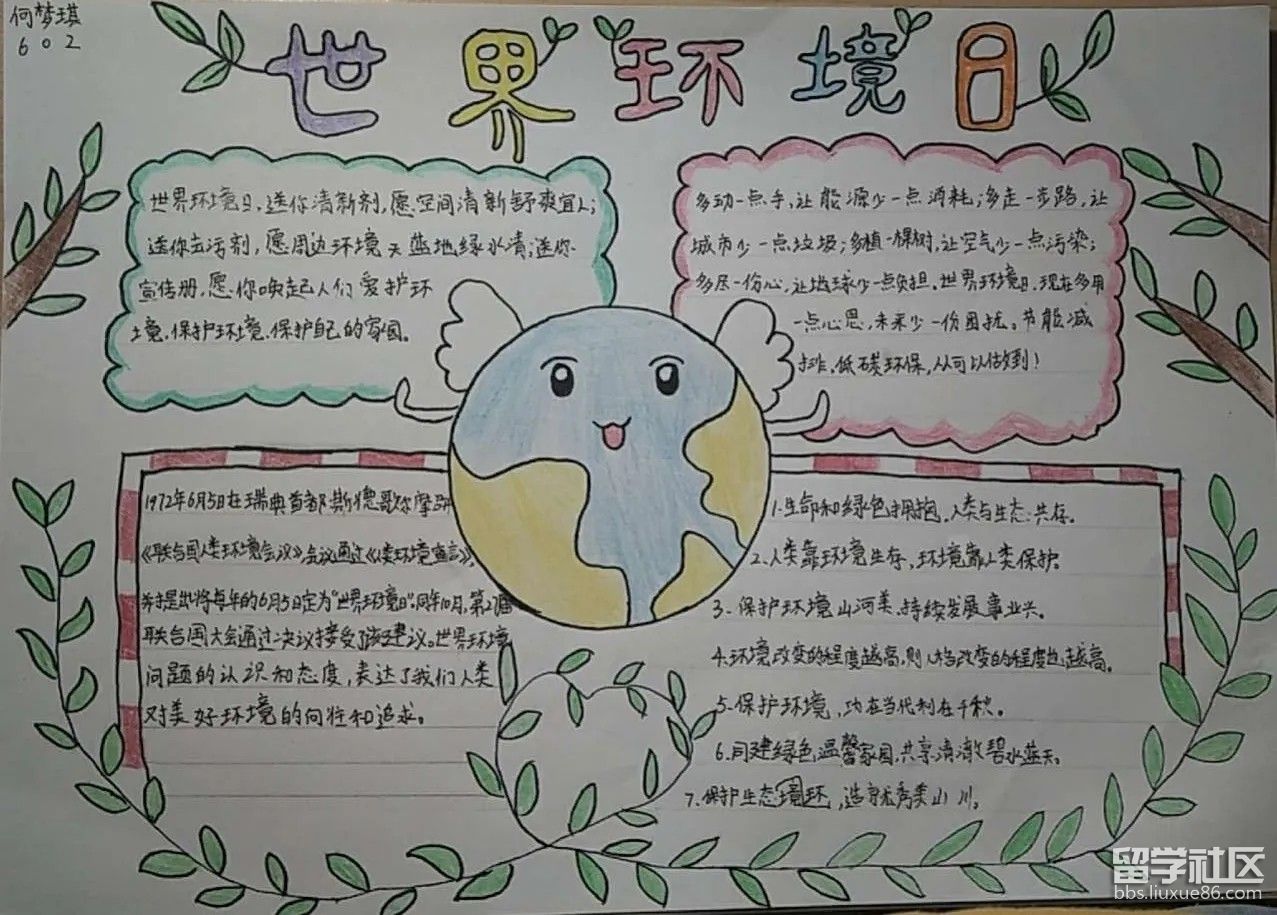 何梦琪
602
世界环境日
世界环境日，送你清新剂，愿空间清新舒爽宜人；
送你去污剂，愿周边环境天蓝地绿水清；送你
宣传册，愿你唤起人们爱护环
境，保护环境，保护自己的家园。
多动一点手，让能源少一点消耗；多走一步路，让
城市少一点垃圾；多植一棵树，让空气少一点污染；
多尽一份心，让地球少一点负担。世界环境日，现在多用
一点心思，未来少一份困扰。节能减
排，低碳环保，从可以做到！
1972年6月5日在瑞典首都斯德歌尔摩
《联合国人类环境会议》，会议通过《人类环境宣言》，
并提出将每年的6月5日定为“世界环境日”。同年10月，第27届
联合国大会通过决议接受了该建议。世界环境
问题的认识和态度，表达了我们人类
对美好环境的向往和追求。
1.生命和绿色拥抱，人类与生态共存。
2.人类靠环境生存，环境靠人类保护。
3.保护环境山河美，持续发展事业兴。
4.环境改变的程度越高，则人格改变的程度也越高。
5.保护环境，功在当代利在千秋。
6.同建绿色温馨家园，共享清澈碧水蓝天。
7.保护生态境环，造优秀美山川。
留学社区
bbs.liuxue86.com